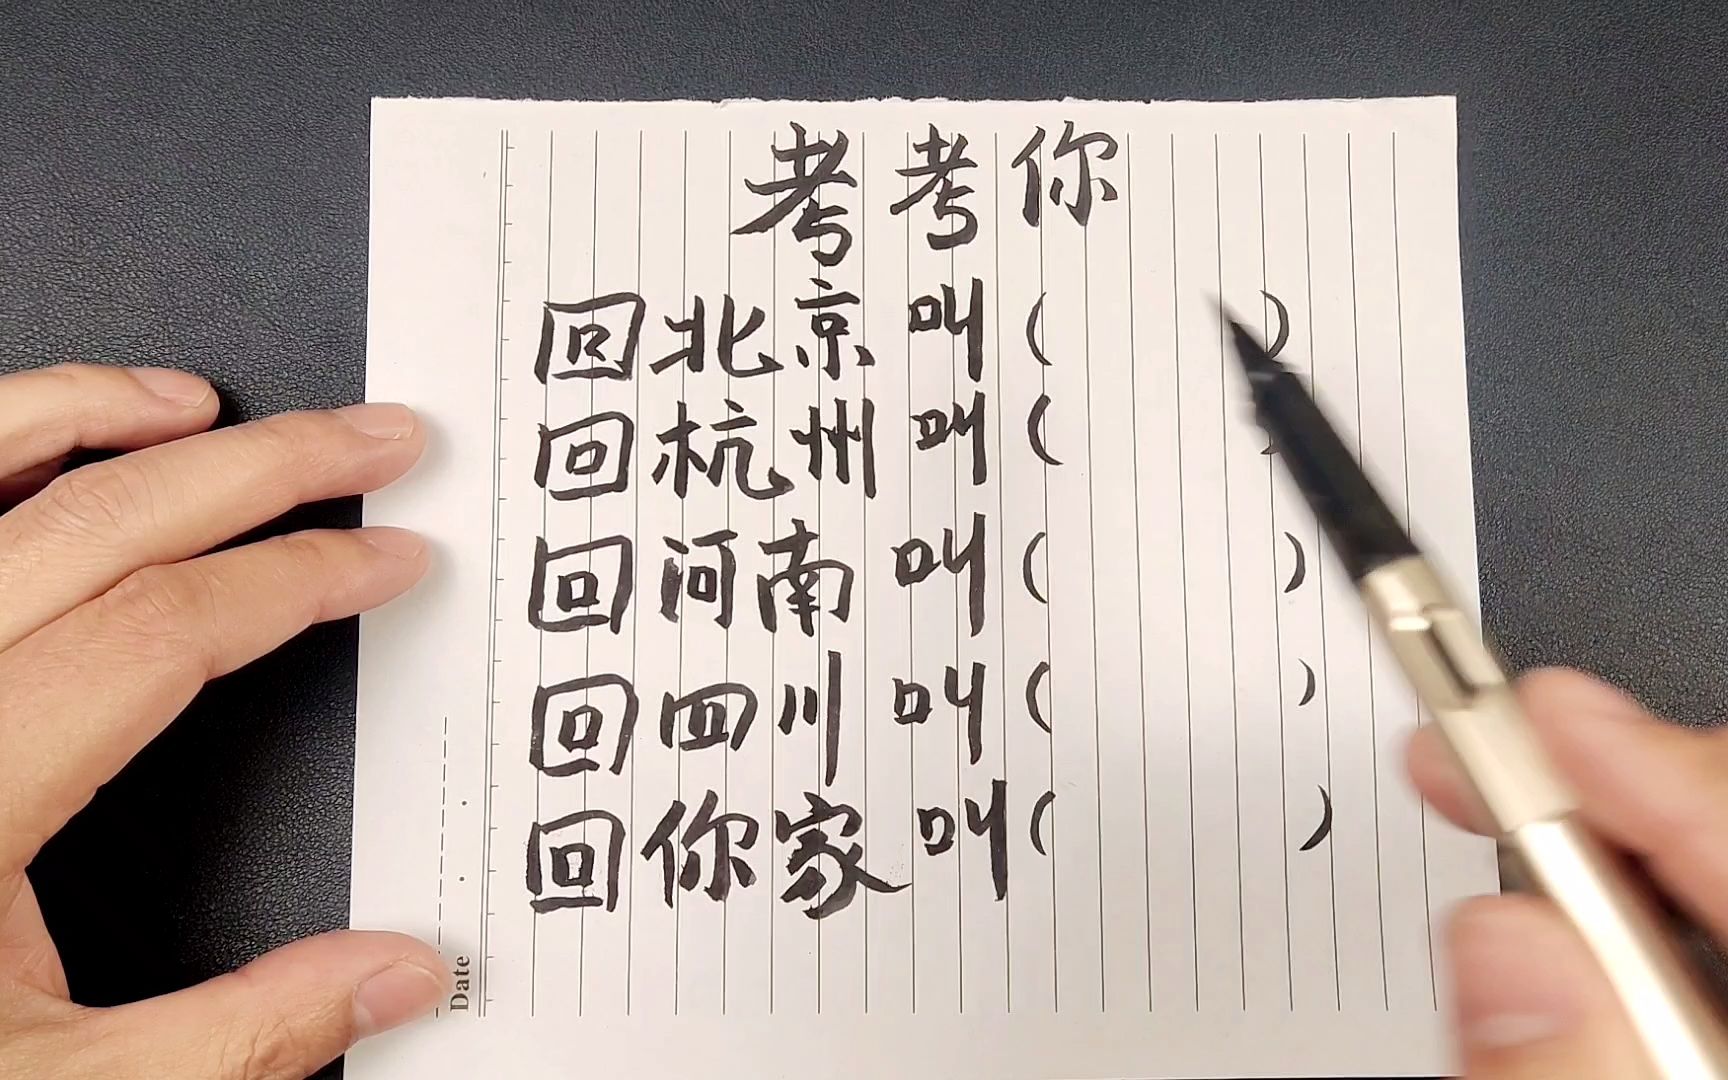 考考你
回北京叫(  )
回杭州叫(  )
回河南叫(  )
回四川叫(  )
回你家叫(  )
Date